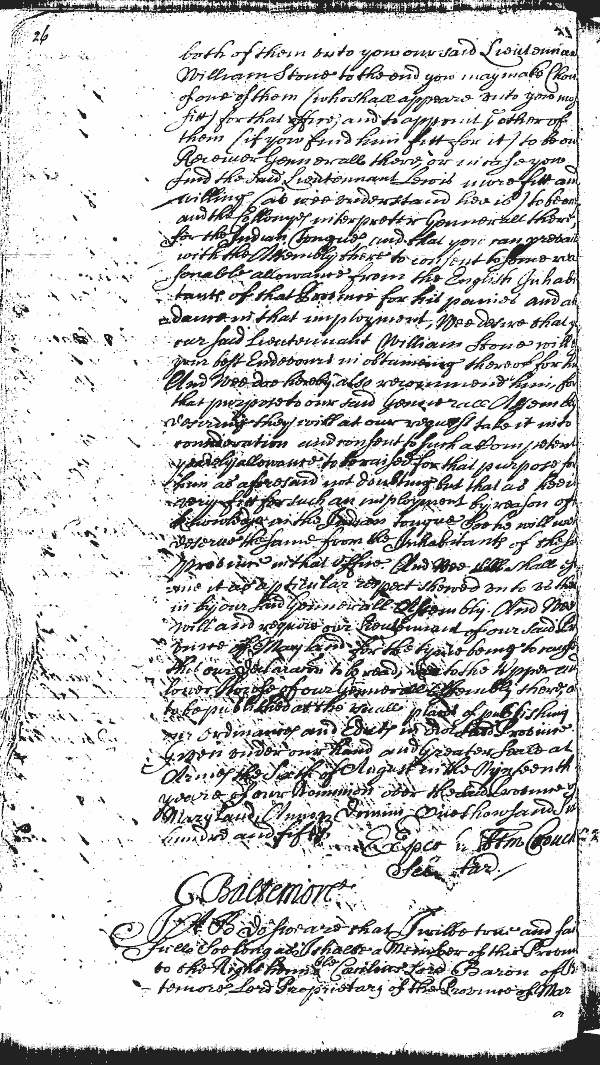 26
both of them unto you our said Lieutennan
William Stone to the end you may make Choi
of one of them (who shall appeare unto you mo
fitt) for that office, and to appoint ye other of
them (if you find him fitt for it) to be ou
Receiver Gennerall there, or in case you
find the said Lieutennant Lewis more fitt and
willing (as wee understand hee is) to be
and the interpreter Gennerall there
for the Indian Tongue, and that you can prevail
with the Assembly there to consent to some rea
sonable allowance from the English Inhabi
tants of that Province for his paines and at
dance in that imployment, Wee desire that y
our said Lieutennant William Stone will
your best Endeavours in obtaineing thereof for hi
And Wee doe hereby also recommend him, for
that purpose to our said Gennerall Assemb
desireing they will at our request take it into
consideration and consent to such a Competent
yearely allowance to be raised for that purpose for
him as aforesaid not doubting but that as hee is
very fitt for such an imployment by reason of
knowledge in the Indian tongue soe he will
deserve the same from the Inhabitants of the s
Province in that office And Wee shall
it as a pticular respect shewed unto us
in by our said Gennerall Assembly And Wee
will and require our Lieutennant of our said Pr
vince of Maryland for the tyme being to cause
this our declaracon to be read, in the Upper an
lower House of our Gennerall Assembly there, a
to be published at the usuall places of publishing
our Ordinances and Edicts in our said Province
Given under our Hand and Greater Seale at
Armes the Sixth of August in the Nynteenth
yeare of our Dominion over the said Province
Mary Land, Annoq Domini One thousand Si
hundred and fifty
Tho
Secretar
C. Baltemore
I A B Do Sweare that I wilbe true and fai
full Soe long as I shalbe a Member of this Provin
to the Right honnble Caecilius Lord Baron of B
temore Lord Proprietary of the Province of Mar